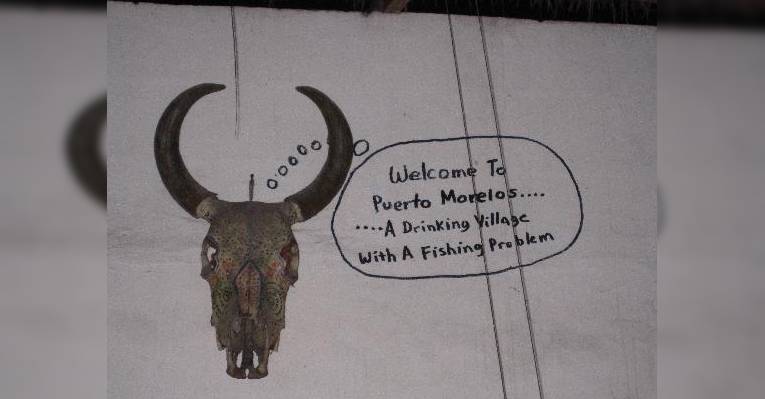 Welcome To
Puerto Morelos....
....A Drinking Village
With A Fishing Problem